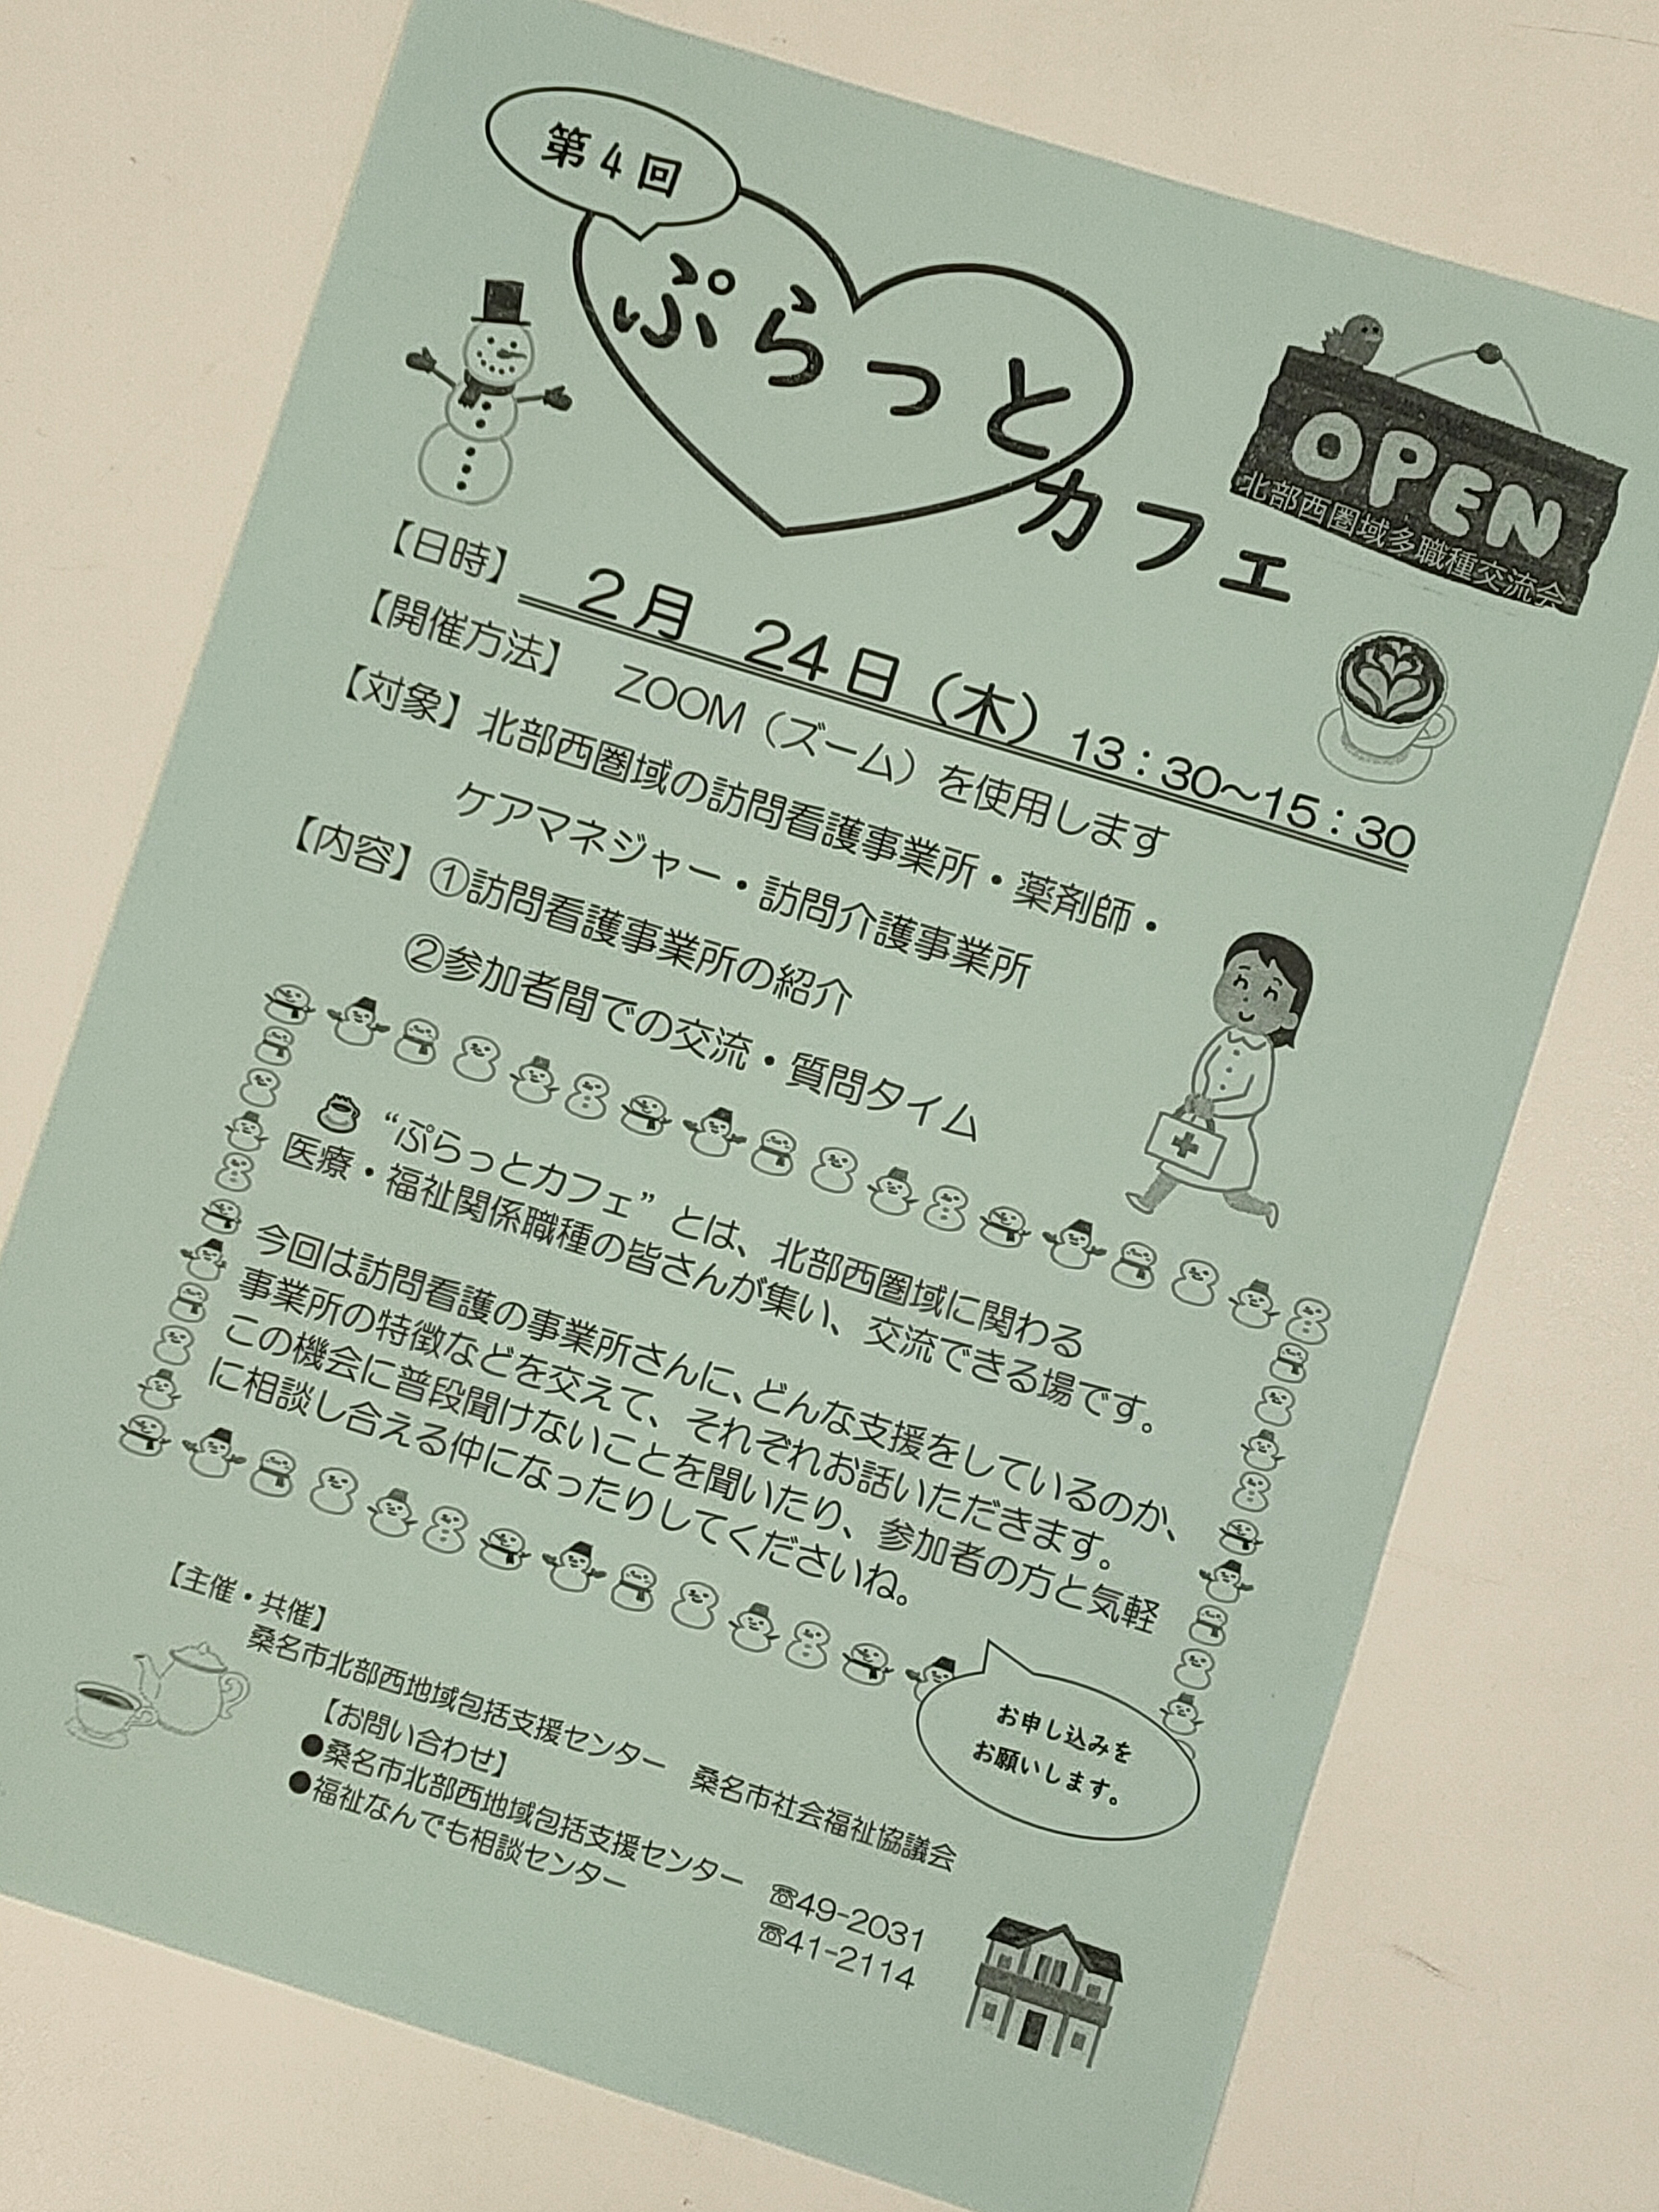 第4回
ぷらっと
カフェ
OPEN
北部西圏域多職種交流会
【日時】 2月 24日(木) 13:30～15:30
【開催方法】 ZOOM(ズーム)を使用します
【対象】北部西圏域の訪問看護事業所・薬剤師・
ケアマネジャー・訪問介護事業所
【内容】①訪問看護事業所の紹介
②参加者間での交流・質問タイム
“ぷらっとカフェ”とは、北部西圏域に関わる
医療・福祉関係職種の皆さんが集い、交流できる場です。
今回は訪問看護の事業所さんに、どんな支援をしているのか、
事業所の特徴などを交えて、それぞれお話いただきます。
この機会に普段聞けないことを聞いたり、参加者の方と気軽
に相談し合える仲になったりしてくださいね。
お申し込みを
お願いします。
【主催・共催】
桑名市北部西地域包括支援センター 桑名市社会福祉協議会
【お問い合わせ】
●桑名市北部西地域包括支援センター ☏49-2031
●福祉なんでも相談センター ☏41-2114